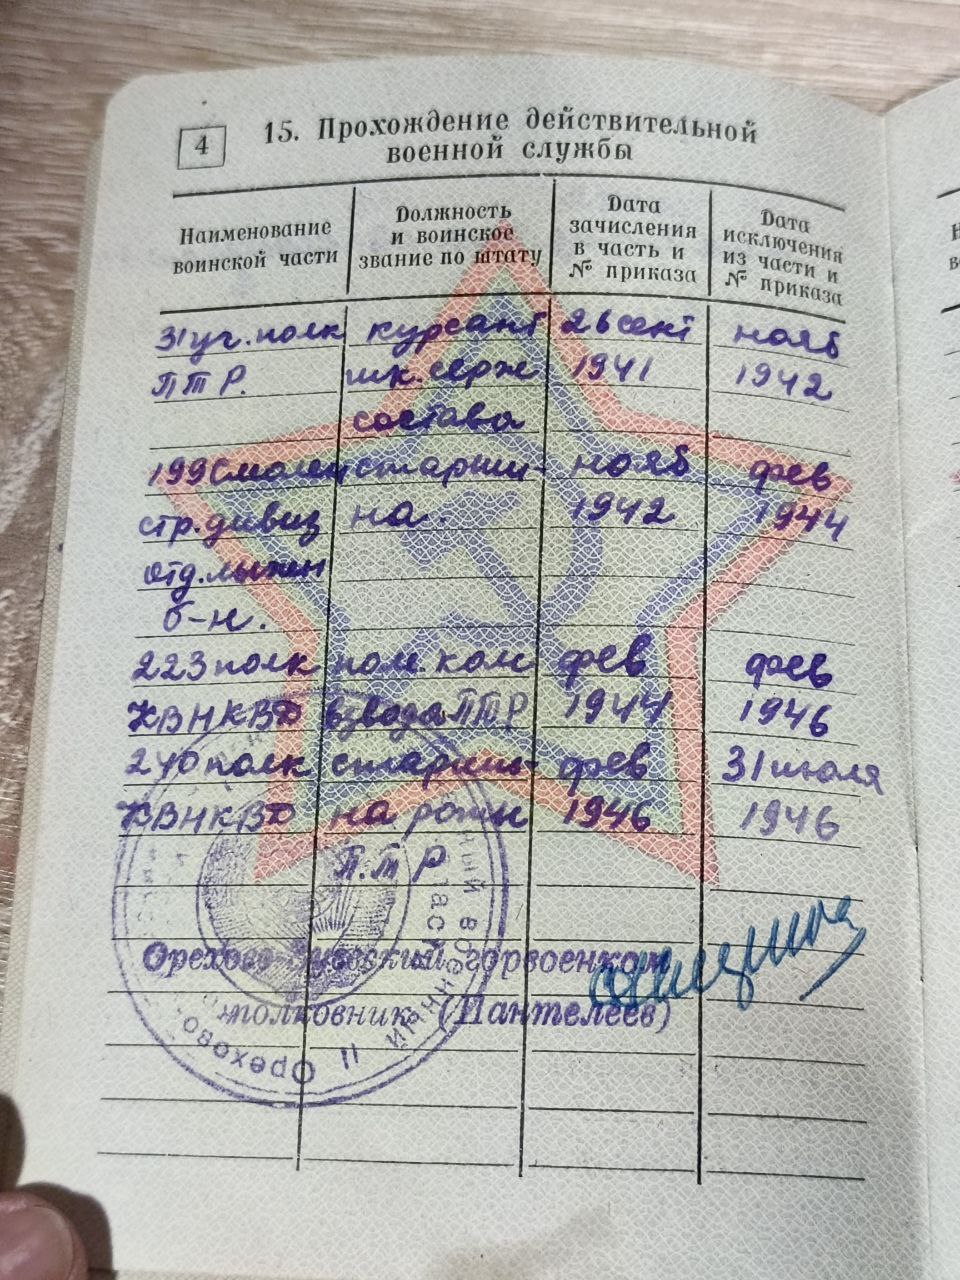 4
15. Прохождение действительной
военной службы
Наименование
воинской части
Должность
и воинское
звание по штату
Дата
зачисления
в часть и
№ приказа
Дата
исключения
из части и
№ приказа
31 уч. полк курсант 26 сент нояб
ПТР. шк. серж 1941 1942
состава
199 Смолен старши- нояб фев
стр. дивиз на. 1942 1944
отд. лыжн
б-н.
223 полк пом. ком фев фев
КВНКВД взвода ПТР 1944 1946
240 полк старши- фев 31 июля
КВНКВД на роты 1946 1946
П.Т Р
Орехово-Зуевский горвоенком
полковник (Пантелеев)